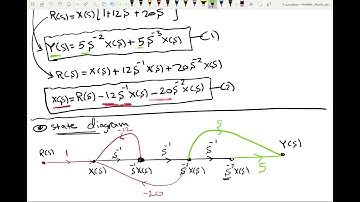 R(s) = X(s) [1+12s⁻¹+20s⁻²]
Y(s) = 5s⁻² X(s) + 5s⁻³ X(s) —(1)
R(s) = X(s) + 12s⁻¹ X(s) + 20s⁻² X(s)
X(s) = R(s) - 12s⁻¹ X(s) - 20s⁻² X(s) —(2)
state diagram
-12 5
R(s) 1 s⁻¹ s⁻¹ s⁻¹ 5 Y(s)
X(s) s⁻¹X(s) s⁻²X(s) s⁻³X(s)
-20